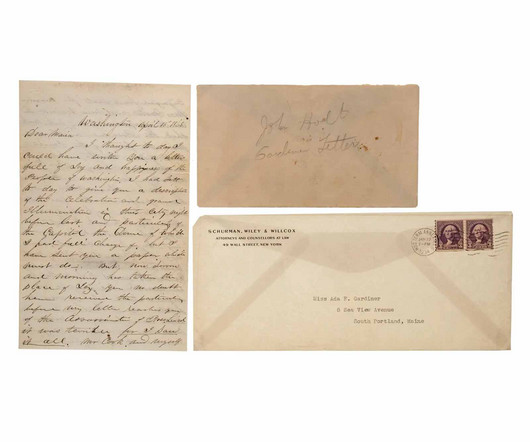 Washington April 15th
Dear Marie
I thought to day I
could have written you a letter
full of Joy and happiness of the
People of Washington I had hoped
to day to give you a description
of the Celebration and grand
Illumination in this City night
before last and particularly of
the Capitol the Dome of which
I had full charge of, but I
have sent you a paper which
must do. But now
and mourning has taken the
place of Joy. You no doubt
have received the particulars
before my letter reaches you
of the Assassination of President
it was terrible for I saw
it all. Mr Cook and myself
John Hodt
Gardiner Letters
SCHURMAN, WILEY & WILLCOX
ATTORNEYS AND COUNSELLORS AT LAW
49 WALL STREET, NEW YORK
Miss Ada F. Gardiner
8 Sea View Avenue
South Portland, Maine